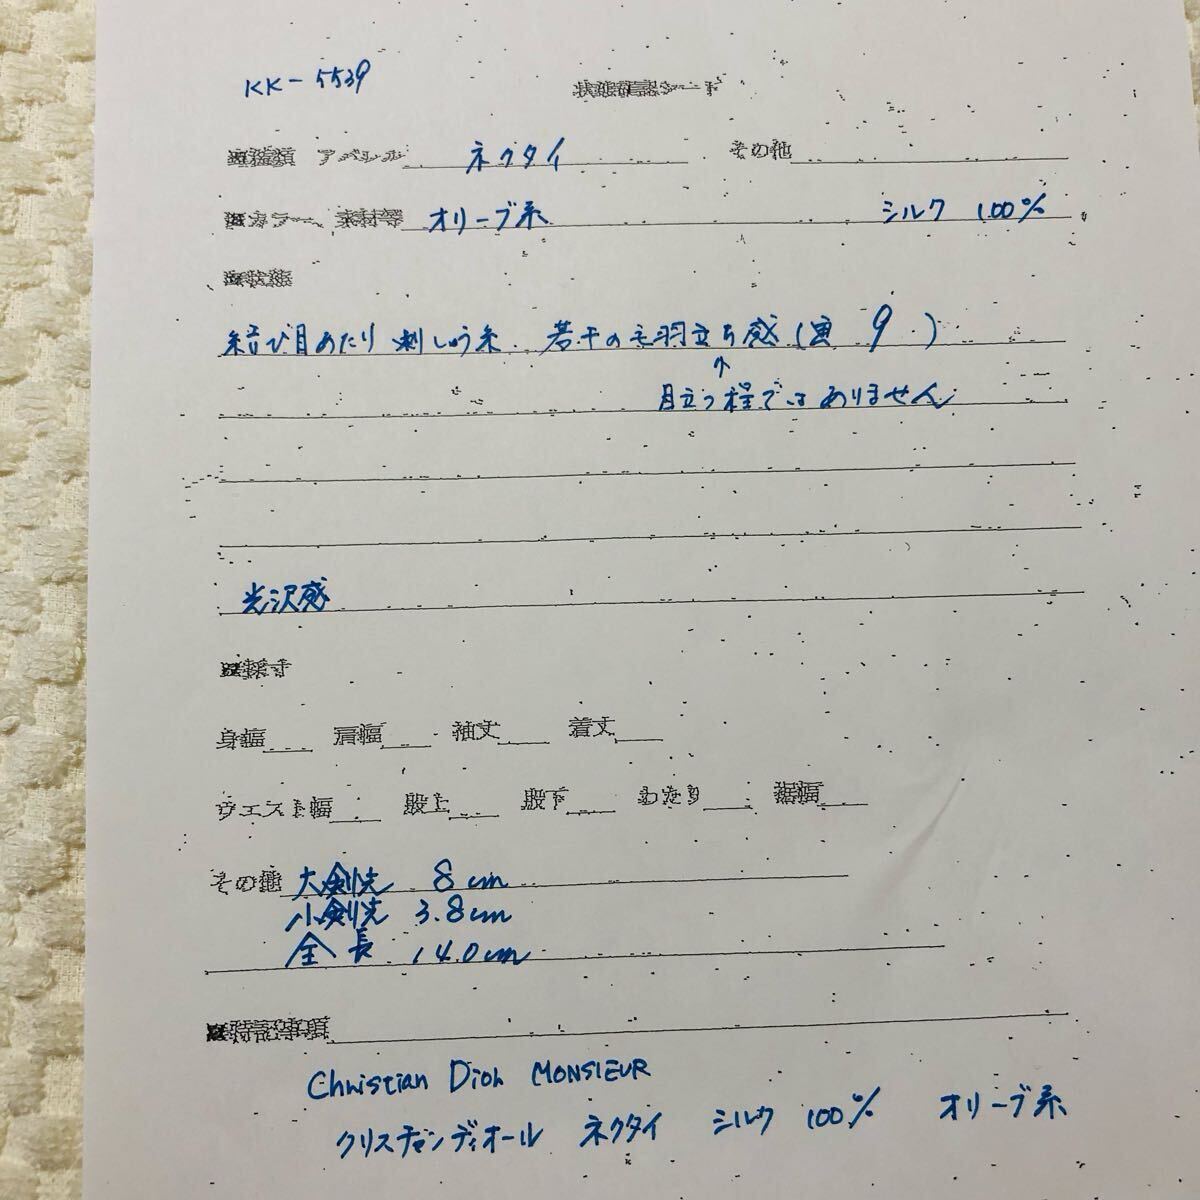 KK-5539
状態確認シート
※種類 アパレル ネクタイ その他
※カラー、素材等 オリーブ系 シルク 100%
※状態
結び目あたり 刺しゅう糸、若干の毛羽立ち感(裏 9 )
↑
目立つ程ではありません
光沢感
※採寸
身幅 肩幅 袖丈 着丈
ウエスト幅 股上 股下 わたり 裾幅
その他 大剣先 8cm
小剣先 3.8cm
全長 140cm
※特記事項
Christian Dior MONSIEUR
クリスチャンディオール ネクタイ シルク 100% オリーブ系